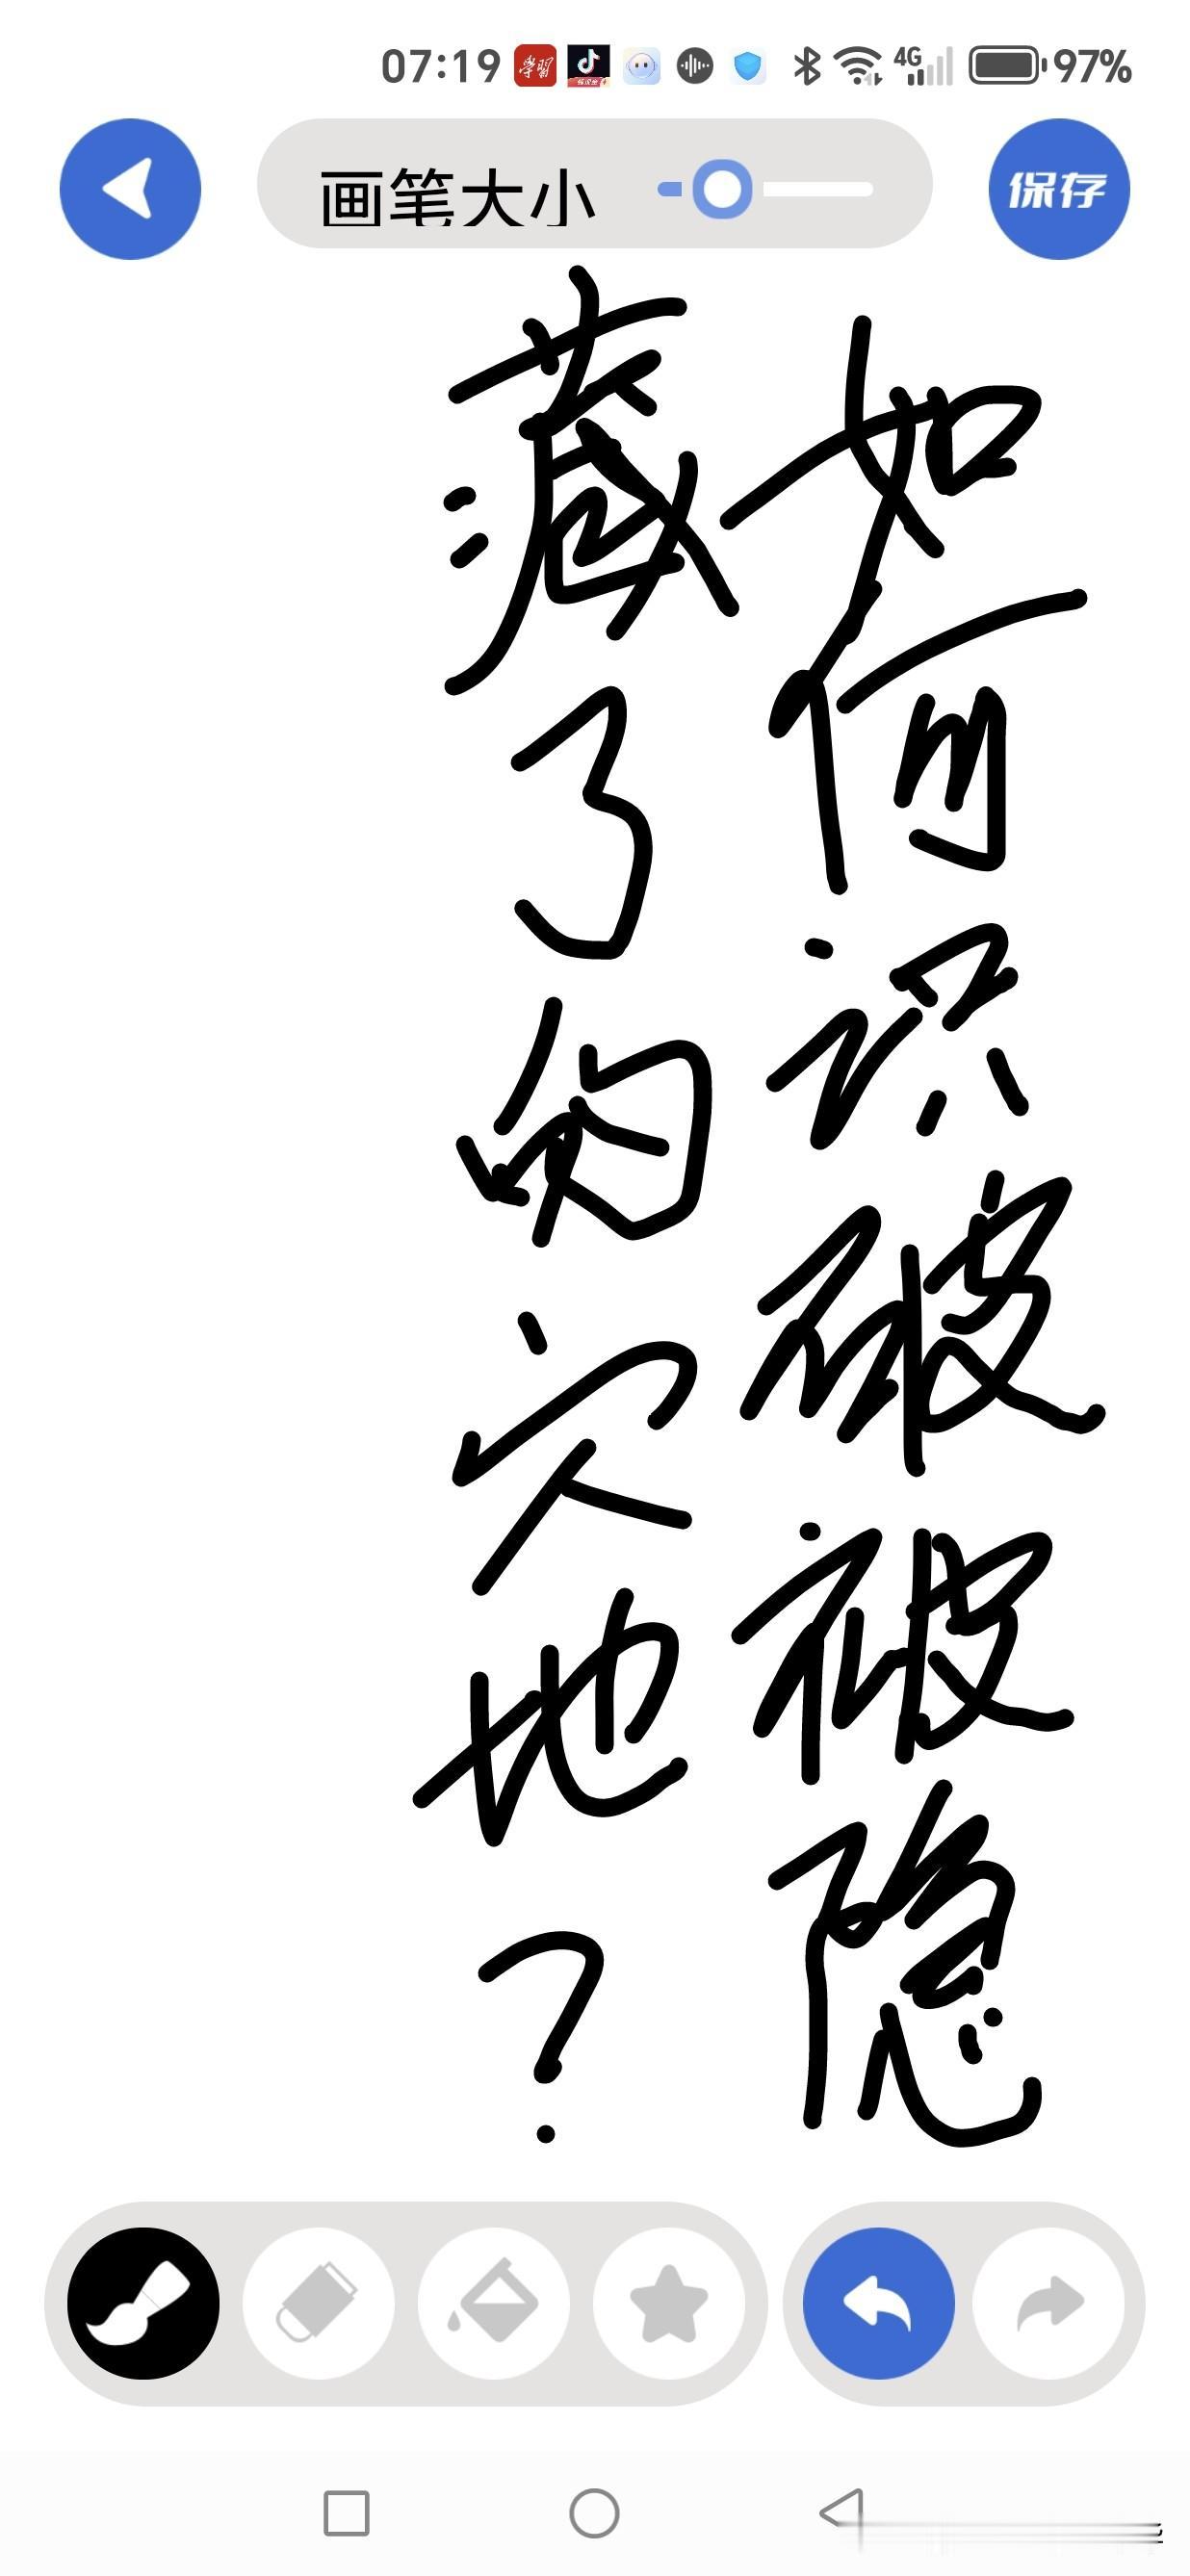 07:19 学習 4G 97%
画笔大小
保存
如何识破被隐
藏了的穴地？